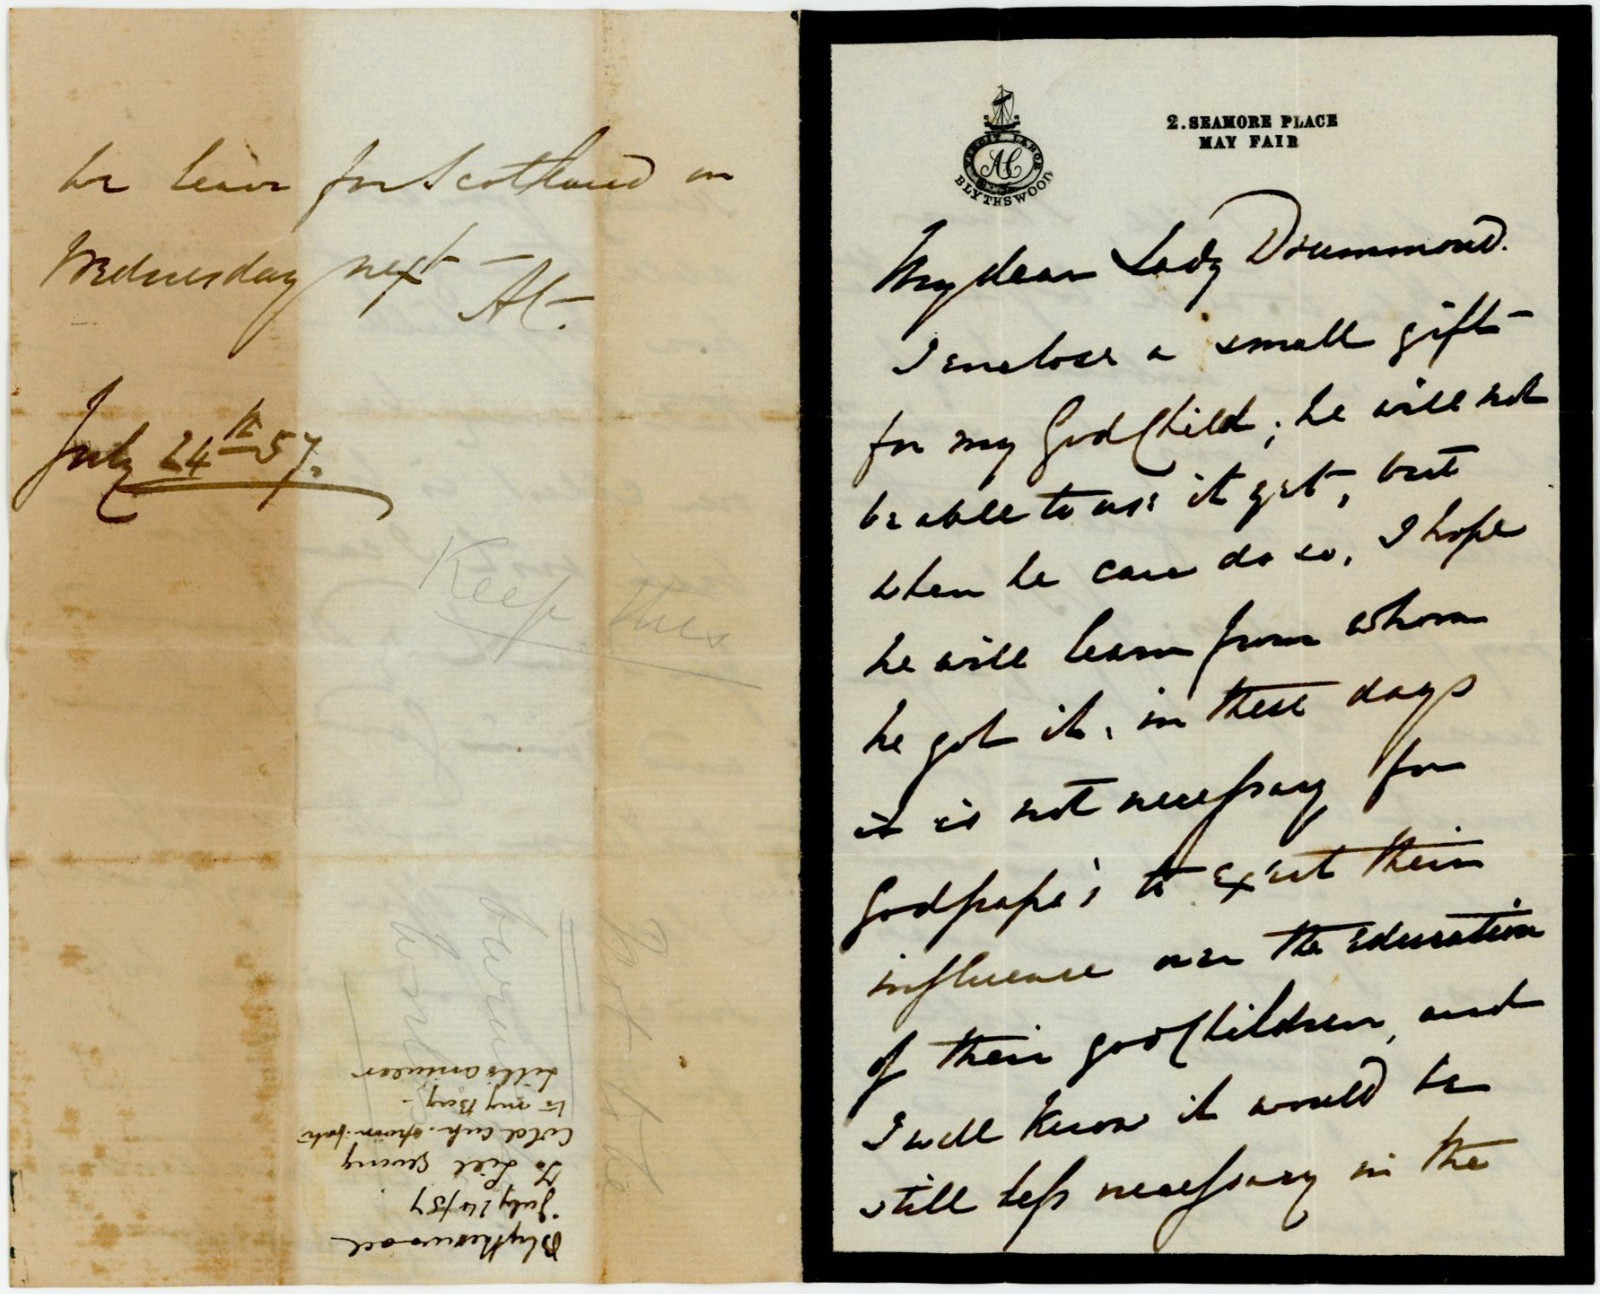 we leave for Scotland on
Wednesday next –
AC.
July 24th 57.
Keep this
not to be
burned
Blythswood
July 24/57
To Lill giving
Gold cup. spoon. fork
to my Boy –
Lill's answer
VINCIT LABOR
AC
BLYTHSWOOD
2. SEAMORE PLACE
MAY FAIR
My dear Lady Drummond.
I enclose a small gift
for my GodChild; he will not
be able to use it yet, but
when he can do so, I hope
he will learn from whom
he got it, in these days
it is not necessary for
Godpapa's to exert their
influence over the education
of their godChildren, and
I well know it would be
still less necessary in the